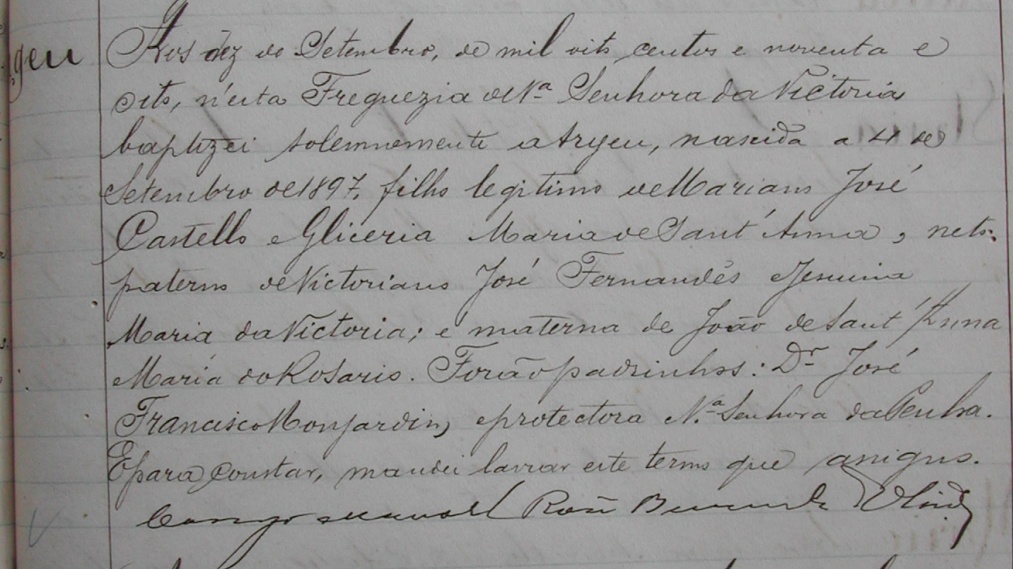 geu
Aos dez de Setembro, de mil oito centos e noventa e
oito, n'esta Freguezia de Nª Senhora da Victoria
baptizei solemnemente a Argeu, nascido a 4 de
Setembro de 1897, filho legitimo de Mariano José
Castello e Gliceria Maria de Sant'Anna, neto
paterno de Victoriano José Fernandes e Jesuina
Maria da Victoria; e materna de João de Sant'Anna
Maria do Rosario. Forão padrinhos: Dr José
Francisco Monjardin, e protectora N.ª Senhora da Penha.
E para constar, mandei lavrar este termo que assigno.
Conego Manoel